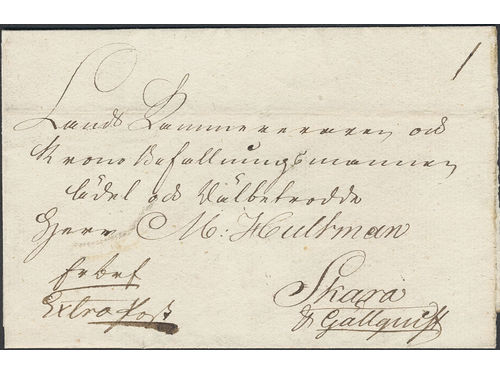 /
Lands Kammereraren och
Krono Befallningsmannen
Ädel och Välbetrodde
Herr M: Hultman
Frbrf
Extra Post
Skara
& Gällquist